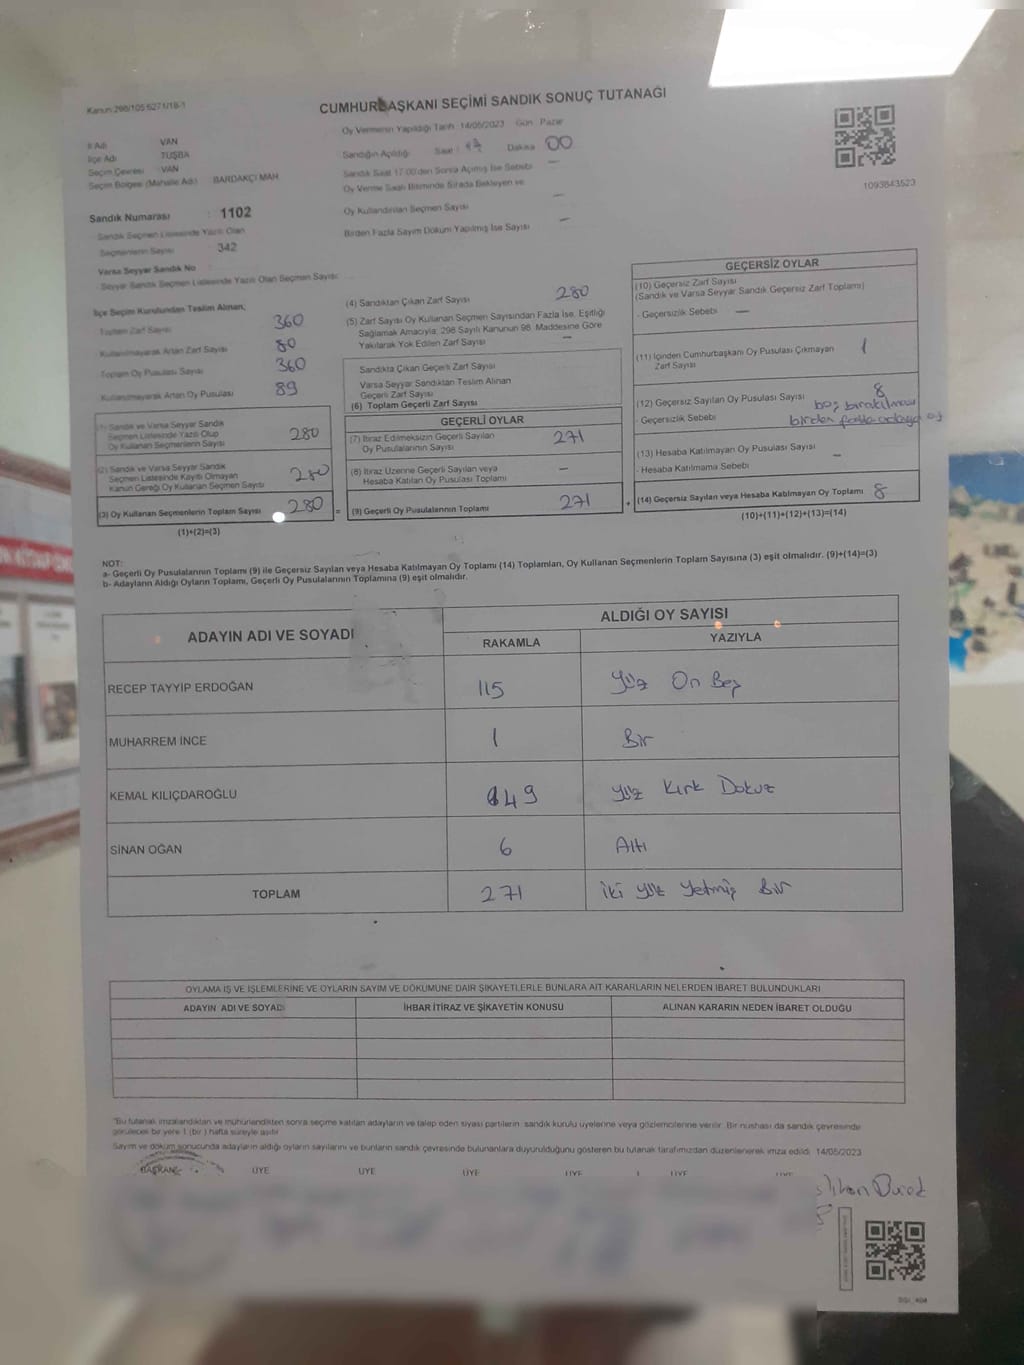 Kanun:298/105 6271/18-1
CUMHURBAŞKANI SEÇİMİ SANDIK SONUÇ TUTANAĞI
Oy Vermenin Yapıldığı Tarih :14/05/2023 Gün: Pazar
İl Adı VAN
İlçe Adı TUŞBA
Seçim Çevresi :VAN
Seçim Bölgesi (Mahalle Adı) BARDAKÇI MAH.
Sandığın Açıldığı Saat : Dakika 00
Sandık Saat 17:00'den Sonra Açılmış İse Sebebi —
Oy Verme Saati Bitiminde Sırada Bekleyen ve
Oy Kullandırılan Seçmen Sayısı —
Birden Fazla Sayım Döküm Yapılmış İse Sayısı —
1093843523
Sandık Numarası : 1102
Sandık Seçmen Listesinde Yazılı Olan
Seçmenlerin Sayısı : 342
Varsa Seyyar Sandık No :
Seyyar Sandık Seçmen Listesinde Yazılı Olan Seçmen Sayısı:
İlçe Seçim Kurulundan Teslim Alınan;
Toplam Zarf Sayısı 360
Kullanılmayarak Artan Zarf Sayısı 80
Toplam Oy Pusulası Sayısı 360
Kullanılmayarak Artan Oy Pusulası 89
(1) Sandık ve Varsa Seyyar Sandık
Seçmen Listesinde Yazılı Olup
Oy Kullanan Seçmenlerin Sayısı 280
(2) Sandık ve Varsa Seyyar Sandık
Seçmen Listesinde Kayıtlı Olmayan
Kanun Gereği Oy Kullanan Seçmen Sayısı 280
(3) Oy Kullanan Seçmenlerin Toplam Sayısı 280 =
(1)+(2)=(3)
(4) Sandıktan Çıkan Zarf Sayısı 280
(5) Zarf Sayısı Oy Kullanan Seçmen Sayısından Fazla İse, Eşitliği
Sağlamak Amacıyla; 298 Sayılı Kanunun 98. Maddesine Göre
Yakılarak Yok Edilen Zarf Sayısı —
Sandıkta Çıkan Geçerli Zarf Sayısı
Varsa Seyyar Sandıktan Teslim Alınan
Geçerli Zarf Sayısı
(6) Toplam Geçerli Zarf Sayısı
GEÇERLİ OYLAR
(7) İtiraz Edilmeksizin Geçerli Sayılan
Oy Pusulasının Sayısı 271
(8) İtiraz Üzerine Geçerli Sayılan veya
Hesaba Katılan Oy Pusulası Toplamı —
(9) Geçerli Oy Pusulalarının Toplamı 271 +
GEÇERSİZ OYLAR
(10) Geçersiz Zarf Sayısı
(Sandık ve Varsa Seyyar Sandık Geçersiz Zarf Toplamı)
- Geçersizlik Sebebi —
(11) İçinden Cumhurbaşkanı Oy Pusulası Çıkmayan
Zarf Sayısı 1
(12) Geçersiz Sayılan Oy Pusulası Sayısı 8
- Geçersizlik Sebebi boş bırakılması
birden fazla adaya oy
(13) Hesaba Katılmayan Oy Pusulası Sayısı —
- Hesaba Katılmama Sebebi
(14) Geçersiz Sayılan veya Hesaba Katılmayan Oy Toplamı 8
(10)+(11)+(12)+(13)=(14)
NOT:
a- Geçerli Oy Pusulalarının Toplamı (9) ile Geçersiz Sayılan veya Hesaba Katılmayan Oy Toplamı (14) Toplamları, Oy Kullanan Seçmenlerin Toplam Sayısına (3) eşit olmalıdır. (9)+(14)=(3)
b- Adayların Aldığı Oyların Toplamı, Geçerli Oy Pusulalarının Toplamına (9) eşit olmalıdır.
ADAYIN ADI VE SOYADI ALDIĞI OY SAYISI
RAKAMLA YAZIYLA
RECEP TAYYİP ERDOĞAN 115 Yüz On Beş
MUHARREM İNCE 1 Bir
KEMAL KILIÇDAROĞLU 149 Yüz Kırk Dokuz
SİNAN OĞAN 6 Altı
TOPLAM 271 iki yüz yetmiş Bir
OYLAMA İŞ VE İŞLEMLERİNE VE OYLARIN SAYIM VE DÖKÜMÜNE DAİR ŞİKAYETLERLE BUNLARA AİT KARARLARIN NELERDEN İBARET BULUNDUKLARI
ADAYIN ADI VE SOYADI İHBAR İTİRAZ VE ŞİKAYETİN KONUSU ALINAN KARARIN NEDEN İBARET OLDUĞU
"Bu tutanak imzalandıktan ve mühürlendikten sonra seçime katılan adayların ve talep eden siyasi partilerin sandık kurulu üyelerine veya gözlemcilerine verilir. Bir nüshası da sandık çevresinde
görülecek bir yere 1 (bir) hafta süreyle asılır.
Sayım ve döküm sonucunda adayların aldığı oyların sayılarını ve bunların sandık çevresinde bulunanlara duyurulduğunu gösteren bu tutanak tarafımızdan düzenlenerek imza edildi. 14/05/2023
BAŞKAN ÜYE ÜYE ÜYE ÜYE ÜYE